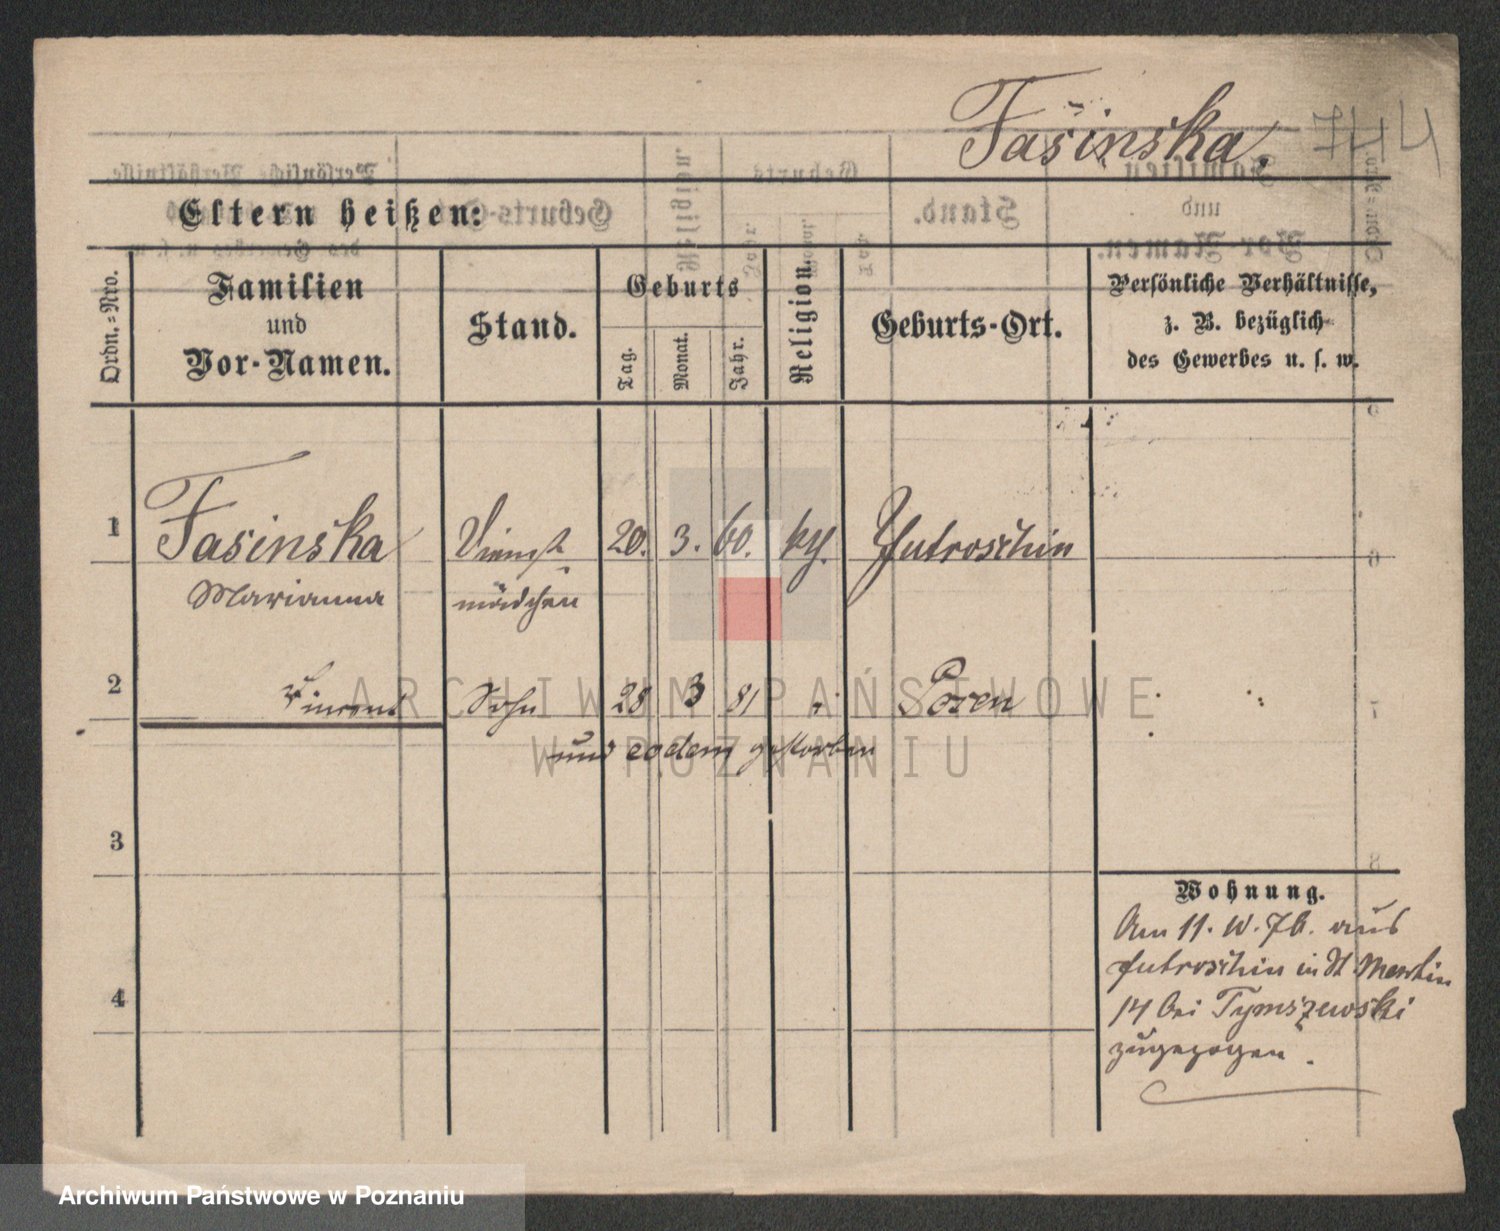 Fasinska.
744
Eltern heißen:
Ordn.=Nro.
Familien
und
Vor-Namen.
Stand.
Geburts
Tag.
Monat.
Jahr.
Religion.
Geburts-Ort.
Persönliche Verhältnisse,
z. B. bezüglich
des Gewerbes u. s. w.
1 Fasinska Dienst 20. 3. 60. kth. Jutroschin
Marianna mädchen
2 Vincent Sohn 28 3 81 " Posen
und eodem gestorben
3
4
Wohnung.
Am 11. 10. 76. aus
Jutroschin in St Martin
14 bei Tymszewski
zugezogen.
ARCHIWUM PAŃSTWOWE
W POZNANIU
Archiwum Państwowe w Poznaniu